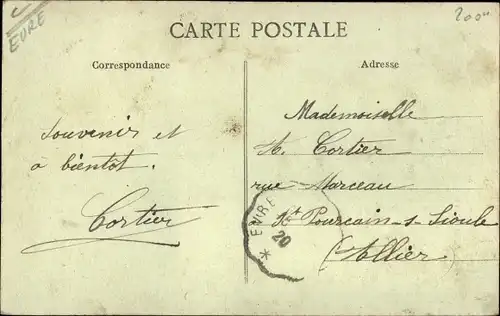 C
EURE
2004
CARTE POSTALE
Correspondance
Adresse
Souvenir et
à bientot.
Cortier
Mademoiselle
H. Cortier
rue Marceau
St Pourcain-s-Sioule
(Allier)
* EVRE
20